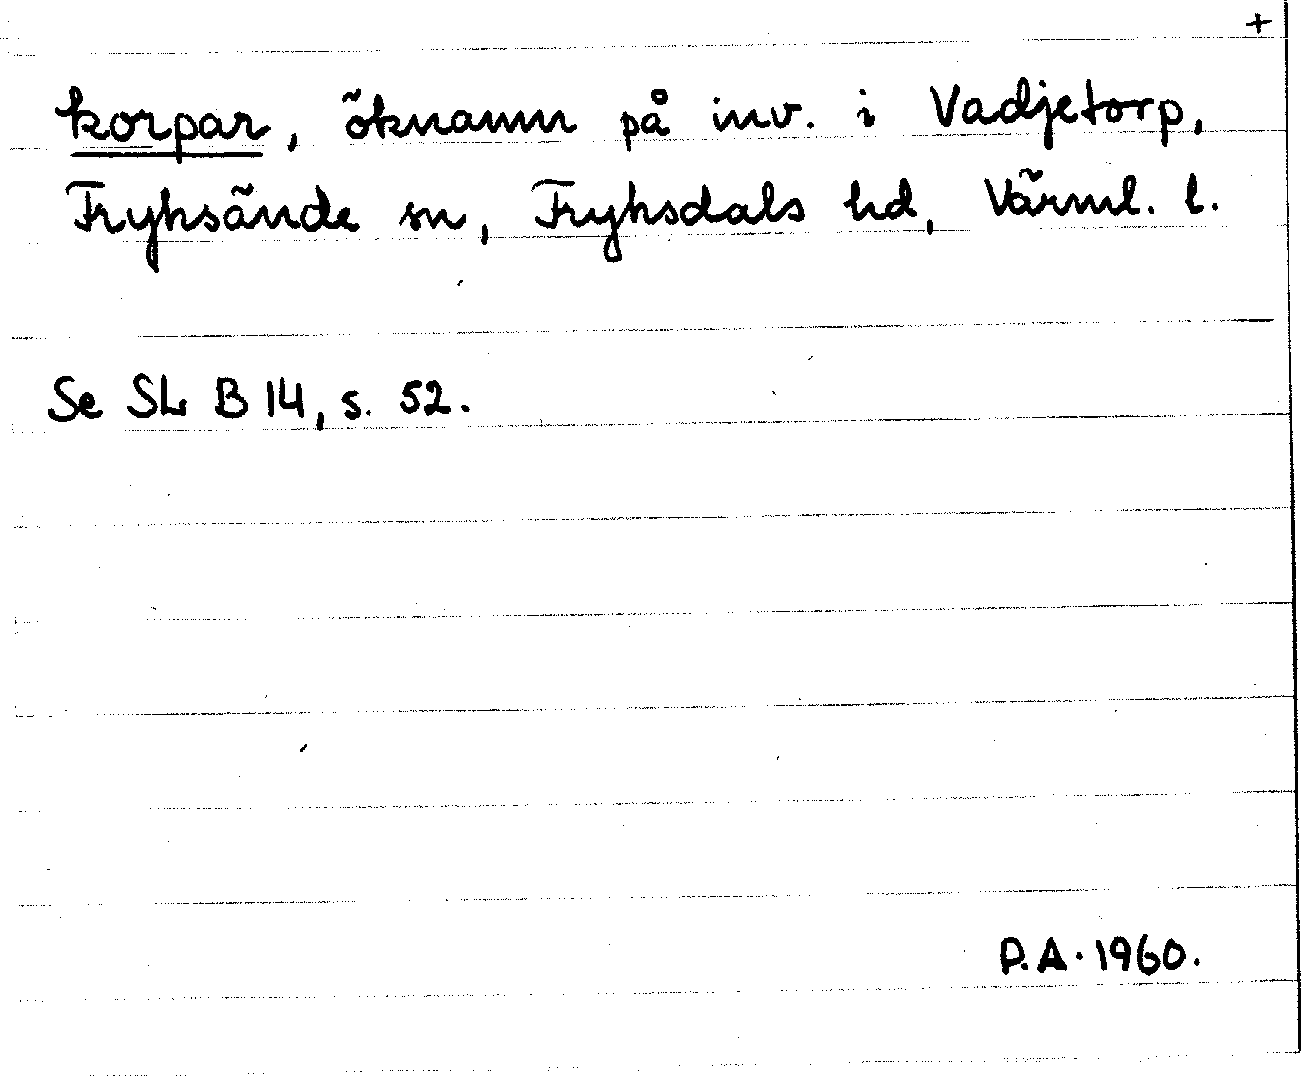 +
korpar, öknamn på inv. i Vadjetorp,
Fryksände sn, Fryksdals hd, Värml. l.
Se SL B 14, s. 52.
P.A. 1960.